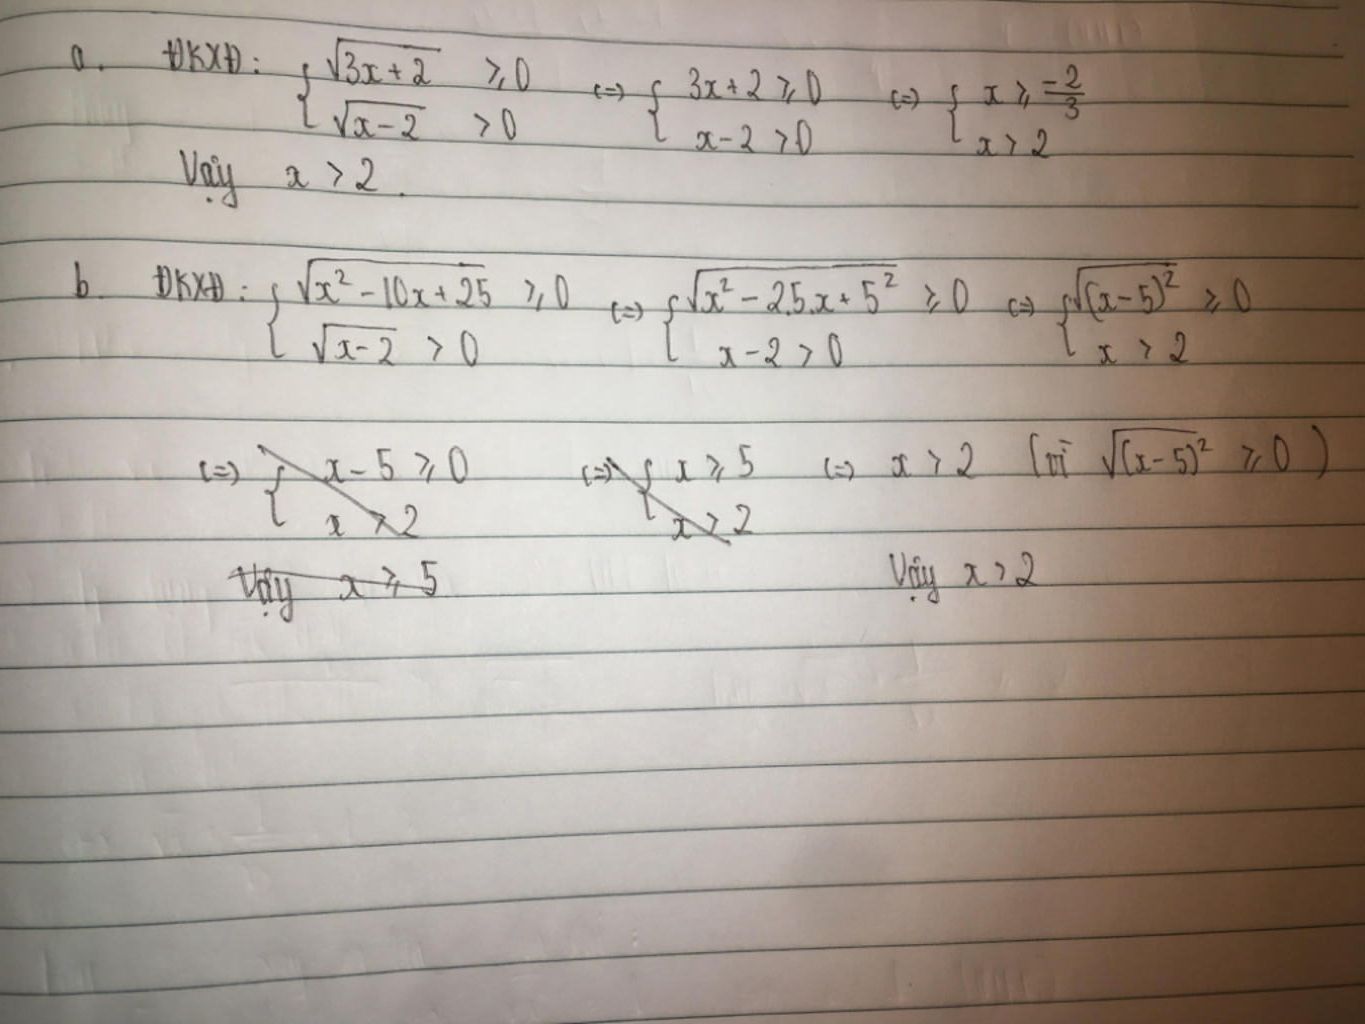 a. ĐKXĐ: { √(3x+2) ≥ 0 ⇔ { 3x+2 ≥ 0 ⇔ { x ≥ -2/3
√(x-2) > 0 x-2 > 0 x > 2
Vậy x > 2.
b. ĐKXĐ: { √(x² - 10x + 25) ≥ 0 ⇔ { √(x² - 2.5.x + 5²) ≥ 0 ⇔ { √((x-5)²) ≥ 0
√(x-2) > 0 x-2 > 0 x > 2
⇔ { x-5 ≥ 0 ⇔ { x ≥ 5 ⇔ x > 2 (vì √((x-5)²) ≥ 0)
x > 2 x > 2
Vậy x ≥ 5 Vậy x > 2